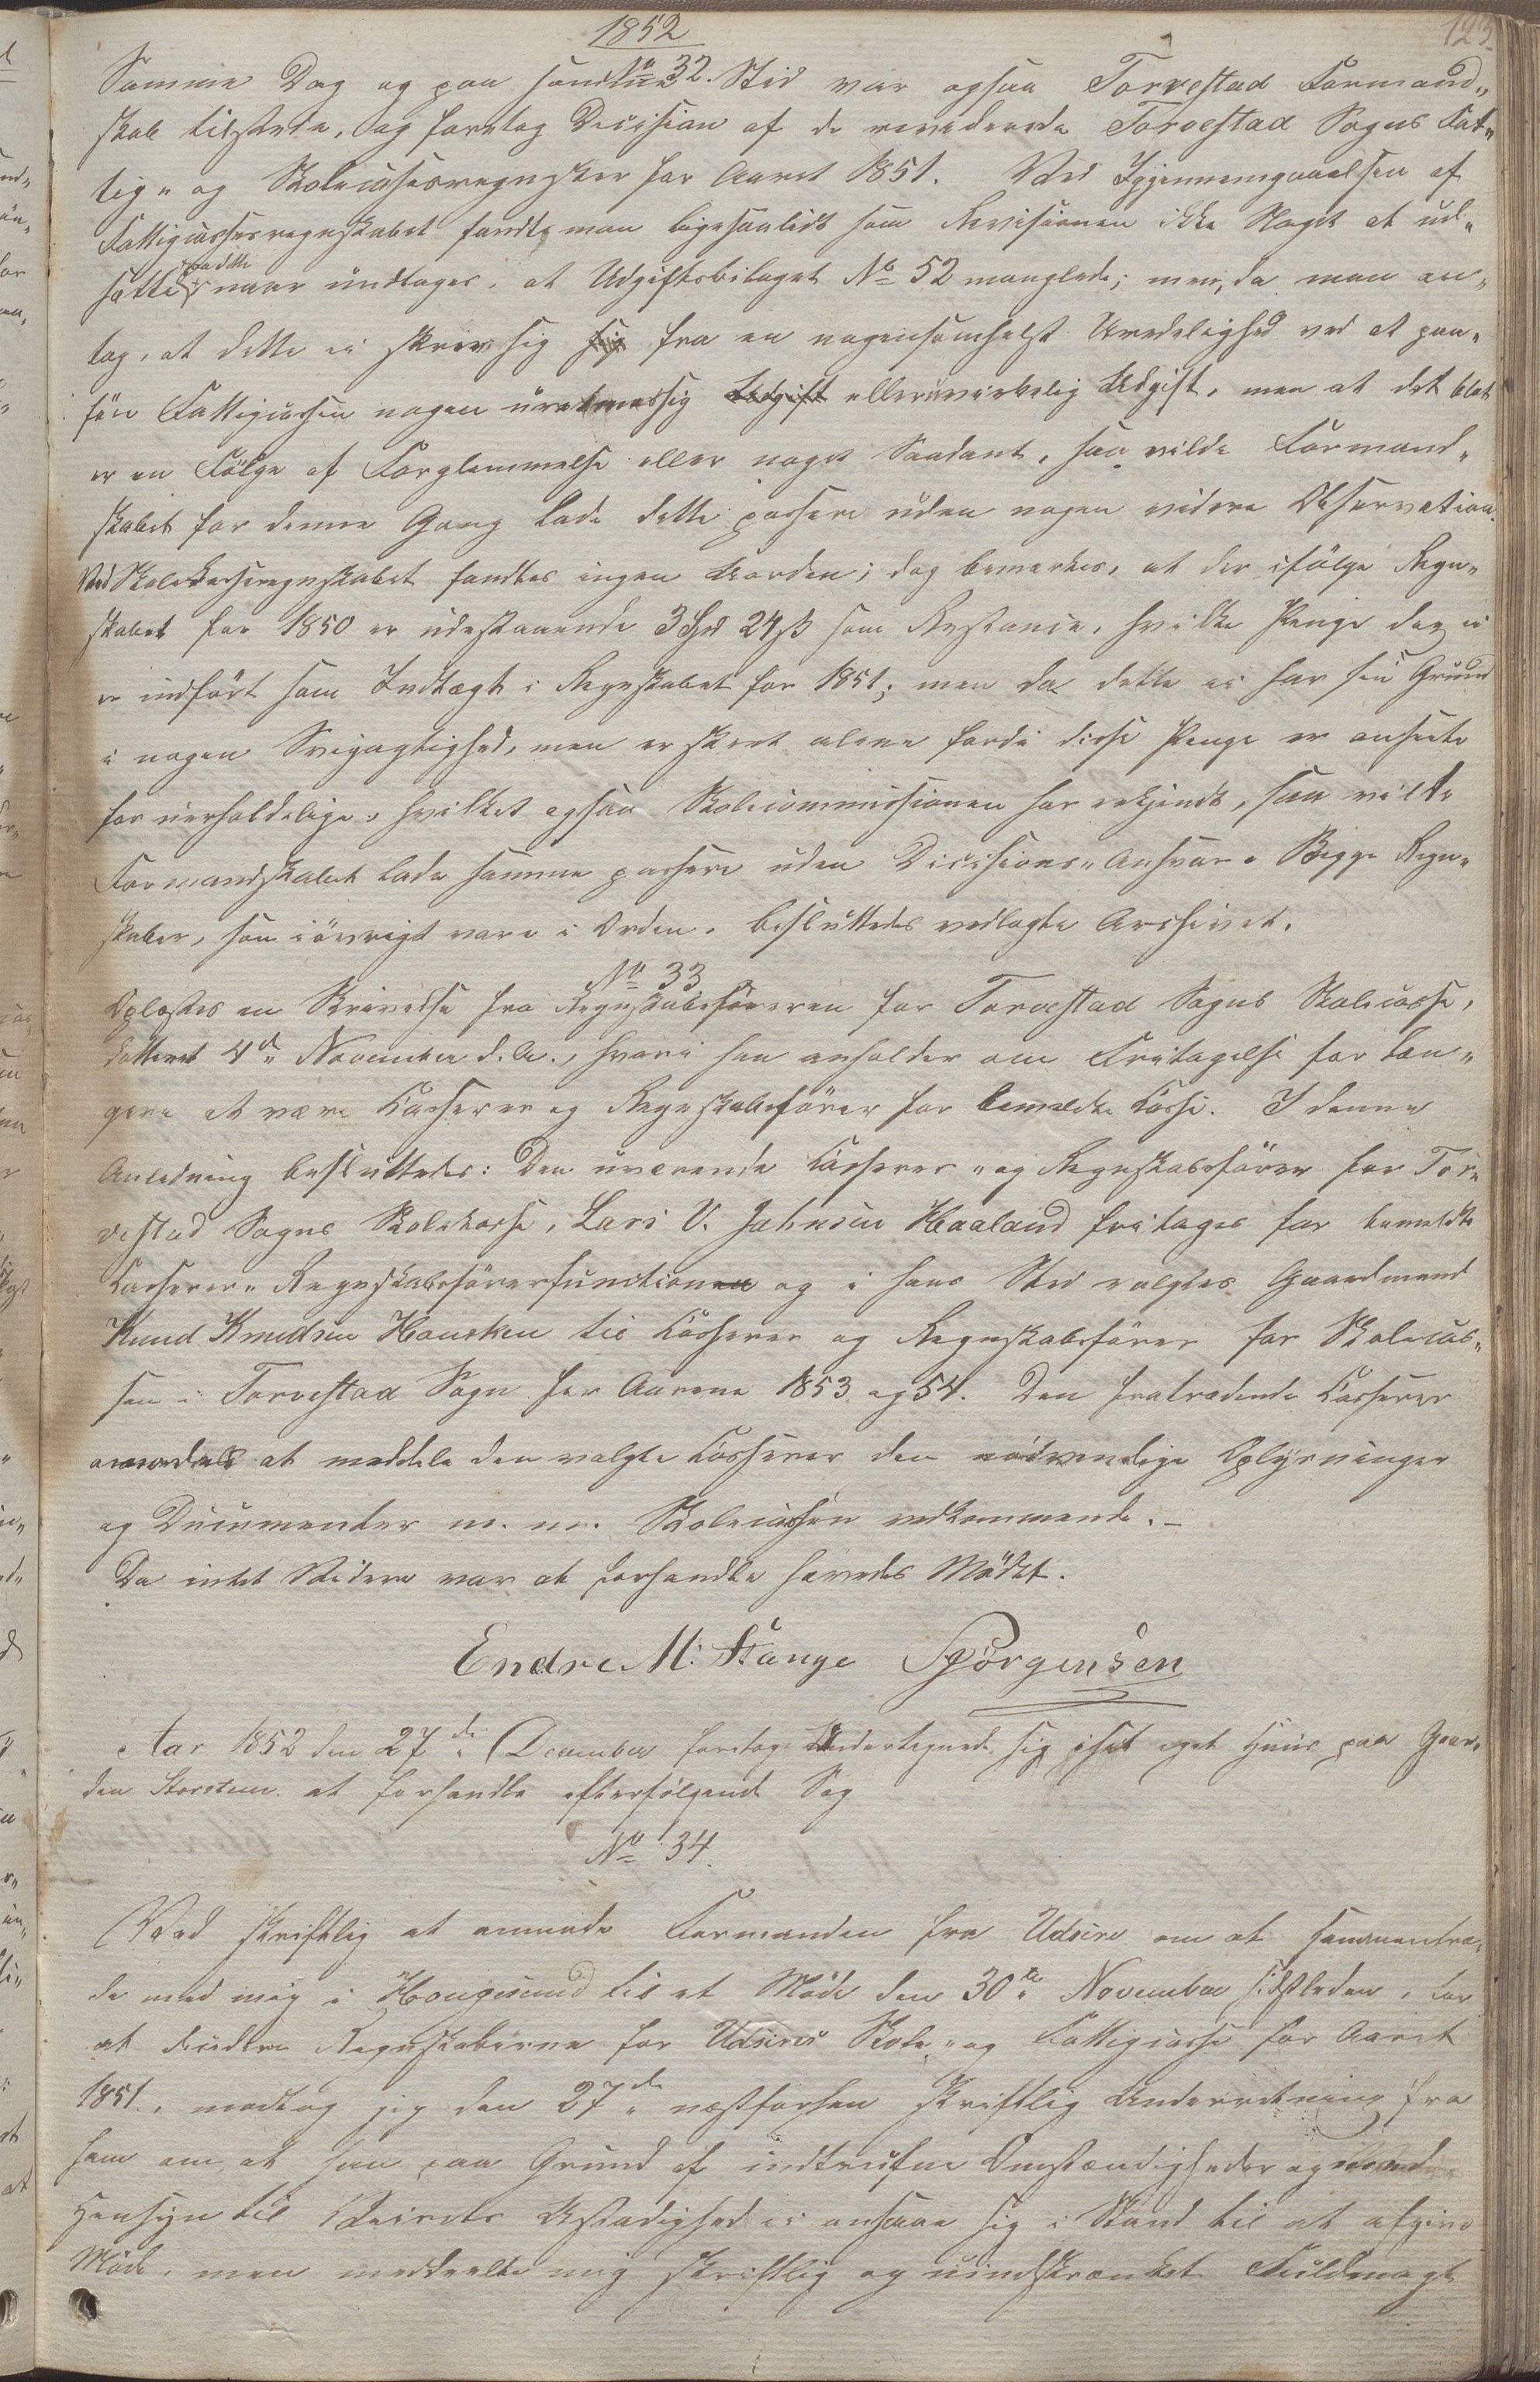 1852
123
No 32.
Samme Dag og paa samme Sted var ogsaa Torvestad Formand„
skab tilstede, og foretog Decision af de reviderede Torvestad Sogns Fat„
tig„ og Skolecasseregnskaber for Aaret 1851. Ved Igjennemgaaelsen af
Fattigcasseregnskabet fandt man ligesaalidt som Revisionen ikke Noget at ud„
sætte paa dette naar undtages, at Udgiftsbilaget No 52 manglede; men, da man an„
tog, at dette ei skrev sig sig fra en nogensomhelst Uredelighed ved at paa„
føre Fattigcassen nogen uretmæssig Udgift eller uvirkelig Udgift, men at det blot
er en Følge af Forglemmelse eller noget Saadant, saa vilde Formand„
skabet for denne Gang lade dette passere uden nogen videre Observation.
Ved Skolekasseregnskabet fandtes ingen Uorden; dog bemærkes, at der ifølge Regn„
skabet for 1850 er udestaaende 3 Spd 24 ß som Restance, hvilke Penge dog ei
er indført som Indtægt i Regnskabet for 1851; men da dette ei har sin Grund
i nogen Svigagtighed, men er skeet alene fordi disse Penge er anseete
for uerholdelige, hvilket ogsaa Skolecommissionen har erkjendt, saa vilde
Formandskabet lade samme passere uden Decisions„Ansvar. Begge Regn„
skaber, som iøvrigt vare i Orden, besluttedes vedlagte Archivet.
No 33
Oplæstes en Skrivelse fra Regnskabsføreren for Torvestad Sogns Skolecasse,
datteret 4de November d. A., hvori han anholder om Fritagelse for læn„
gere at være Casserer og Regnskabsfører for bemeldte Casse. I denne
Anledning besluttedes: Den nuværende Casserer „og Regnskabsfører for Tor„
vestad Sogns Skolekasse, Lars V. Johnsen Haaland fritages for bemeldte
Casserer„ Regnskabsførerfunction og i hans Sted valgtes Gaardmand
Knud Knudsen Hausken til Casserer og Regnskabsfører for Skolecas„
sen i Torvestad Sogn for Aarene 1853 og 54. Den fratrædende Casserer
anmodes at meddele den valgte Casserer den nødvendige Oplysninger
og Documenter m. m. Skolecassen vedkommende. –
Da intet Videre var at forhandle hævedes Mødet.
Endre M: Stange Sjørgensen
Aar 1852 den 27de December foretog Undertegnede sig i sit eget Huus paa Gaar„
den Storsteen at forhandle efterfølgende Sag
No 34.
Ved skriftlig at anmode Formanden fra Udsire om at sammentræ„
de med mig i Hougesund til et Møde den 30te November sidstleden, for
at decidere Regnskaberne for Udsires Skole„ og Fattigcasse for Aaret
1851, modtog jeg den 27de næstforhen skriftlig Underretning fra
ham om at han paa Grund af indtrufne Omstændigheder og med
Hensyn til Veirets Ustadighed ei ansaae sig i Stand til at afgive
Møde, men meddeelte mig skriftlig og uindskrænket Fuldmagt